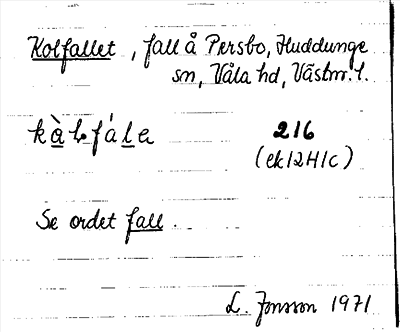 Kolfallet, fall å Persbo, Huddunge
sn, Våla hd, Västm. l.
216
(ek/2H/c)
Se ordet fall.
L. Jonsson 1971